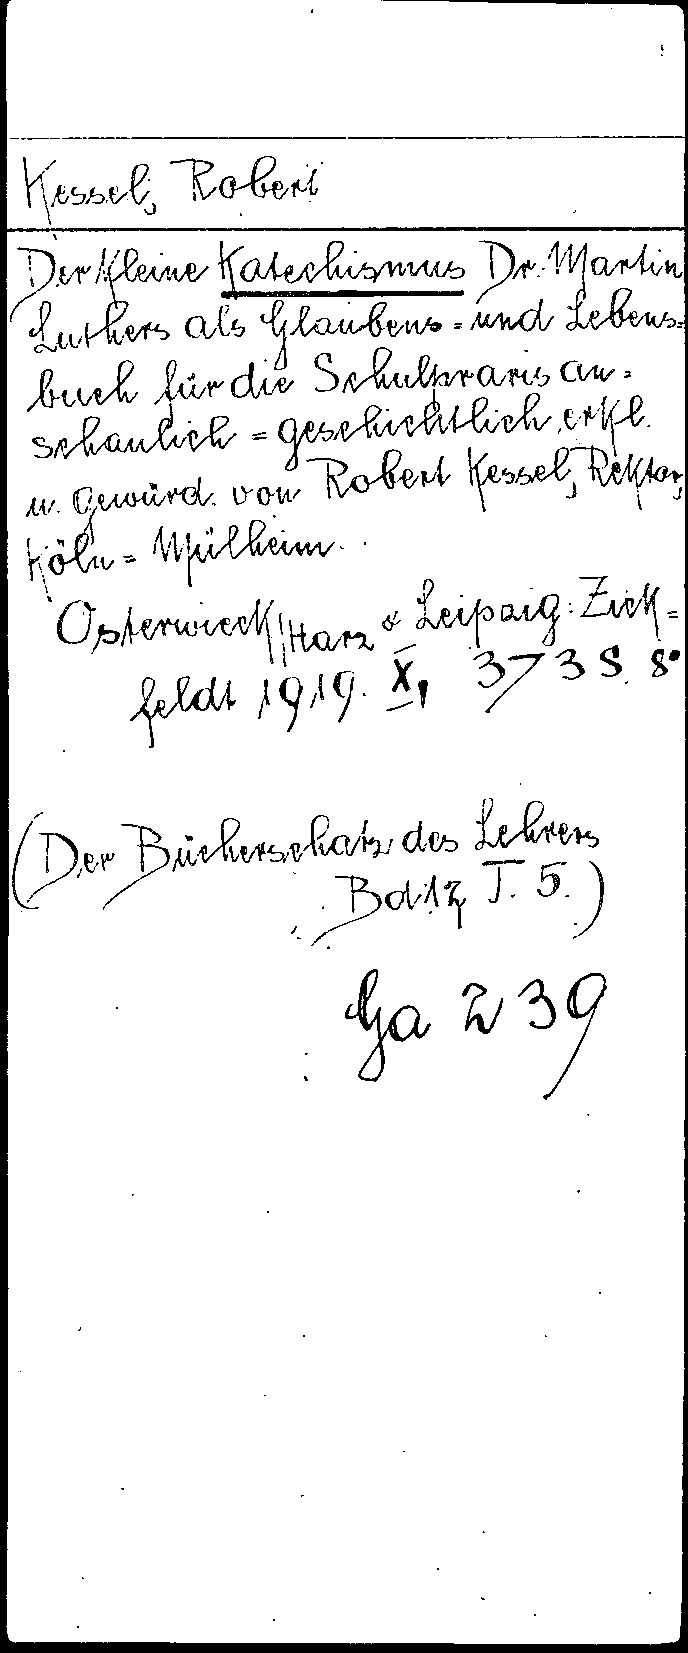 Kessel, Robert
Der Kleine Katechismus Dr. Martin
Luthers als Glaubens= und Lebens=
buch für die Schulpraxis an=
schaulich=geschichtlich erkl.
u. gewürd. von Robert Kessel, Rektor,
Köln=Mülheim.
Osterwieck/Harz & Leipzig: Zick=
feldt 1919. X, 373 S. 8°
(Der Bücherschatz des Lehrers
Bd. T. 5.)
Ga 239